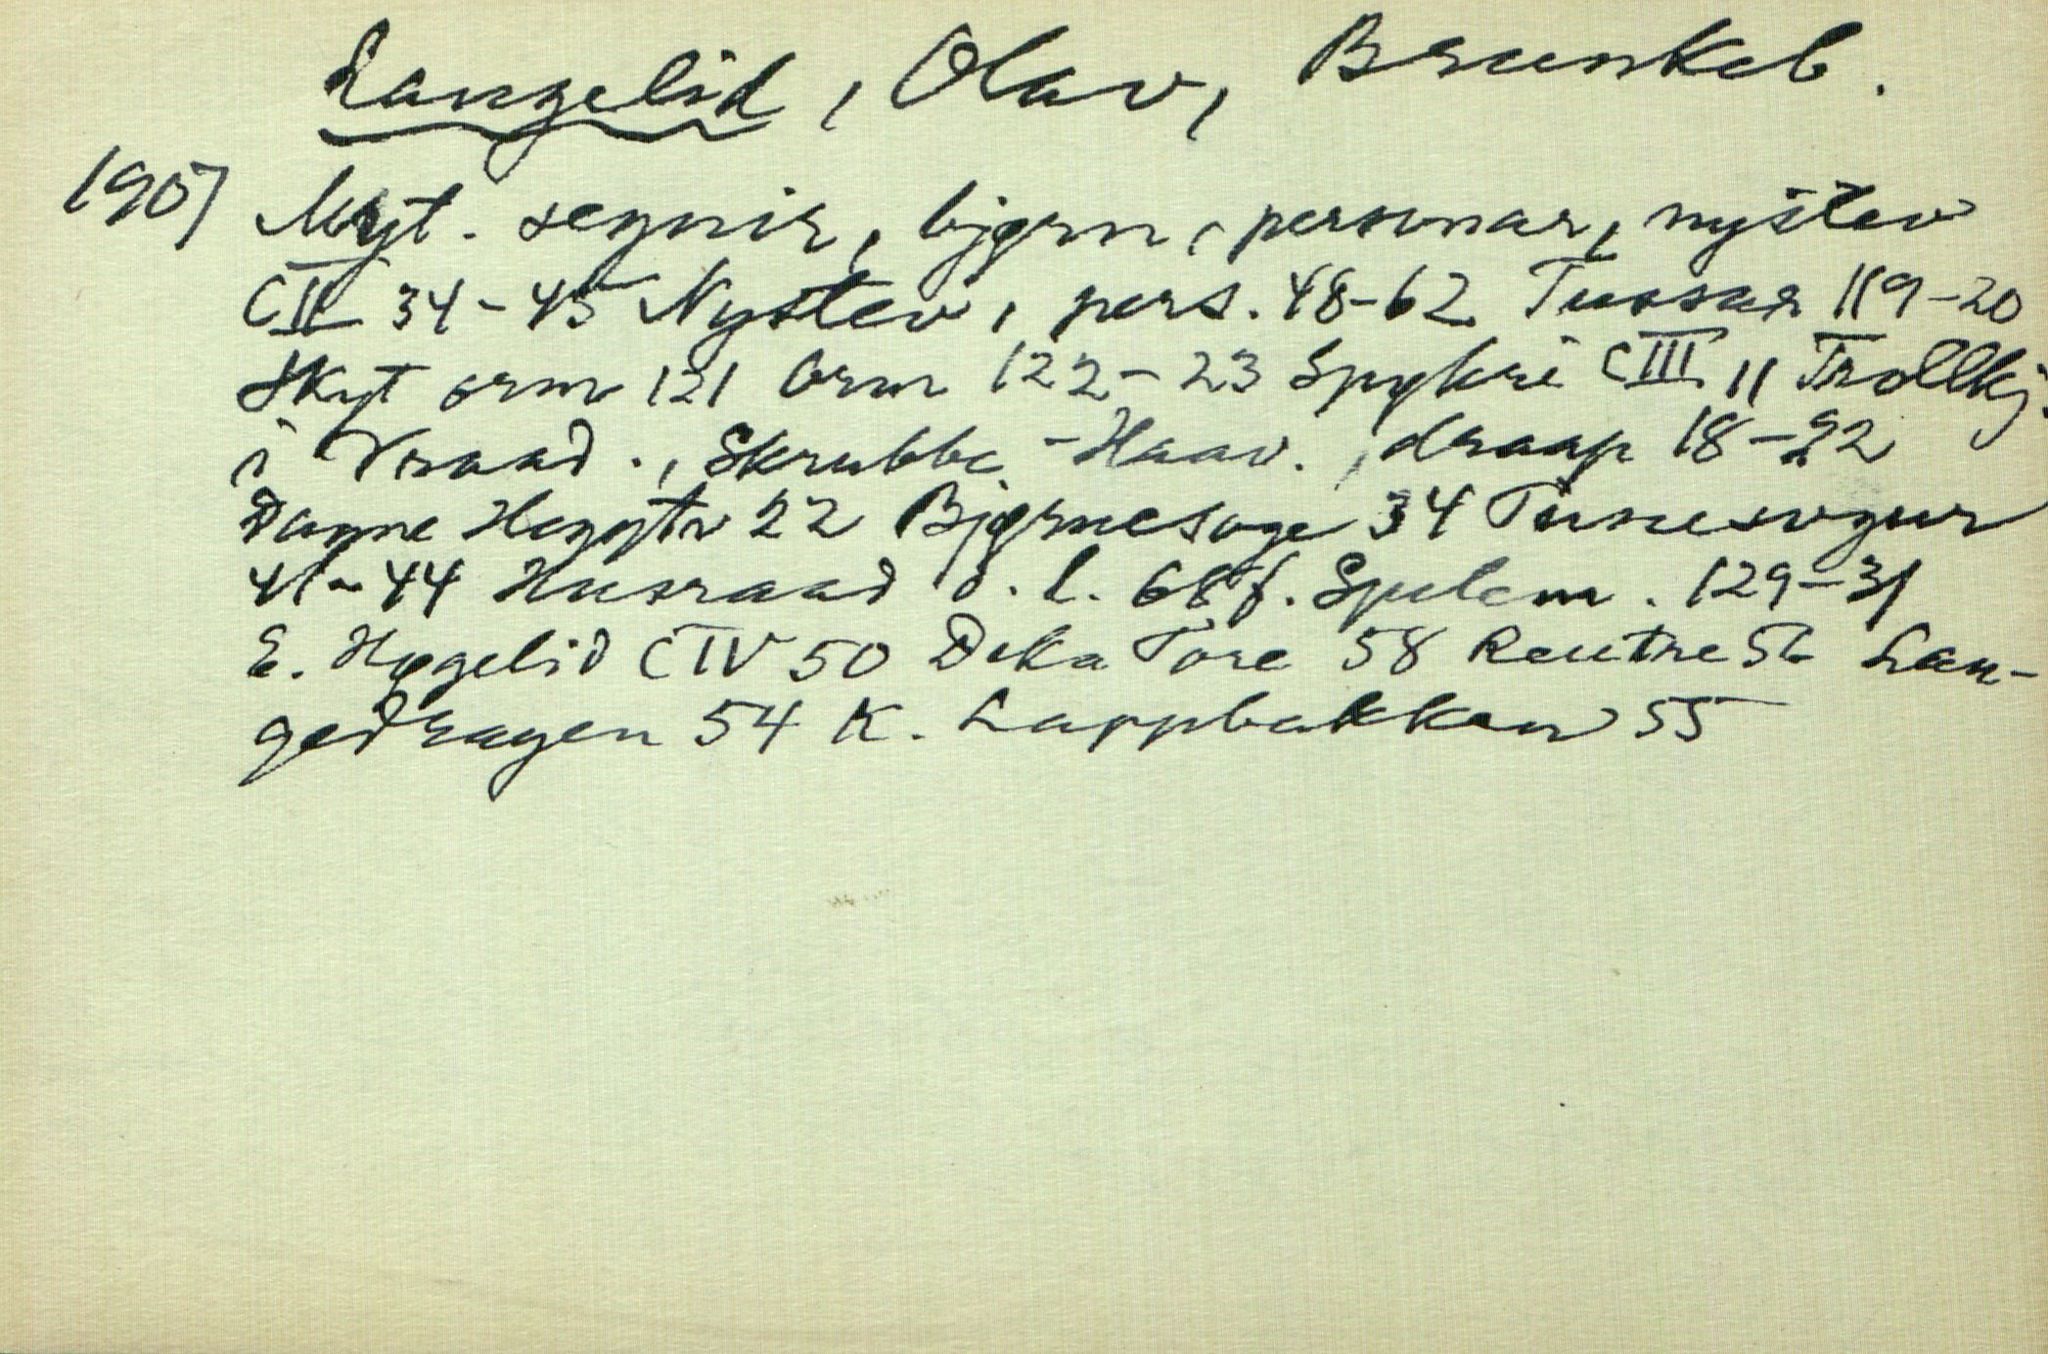 Langelid, Olav, Brunkeb.
1907 Myt. segnir, bjørn, personar, nystev
CII 34-45 Nystev, pers. 48-62 Tussar 119-20
Skyt orm 121 Orm 122-23 Spykri CIII 11 Trollkj.
i Vraad., Skrubbe-Haav., draap 18-22
Dagne Høgetv 22 Bjørnesoge 34 Tussesogur
41-44 Husraad o. l. 68 f. Spelem. 129-31
E. Høgelid CIV 50 Deka Tore 58 Rentne 56 Lan-
gedragen 54 K. Lappbakken 55